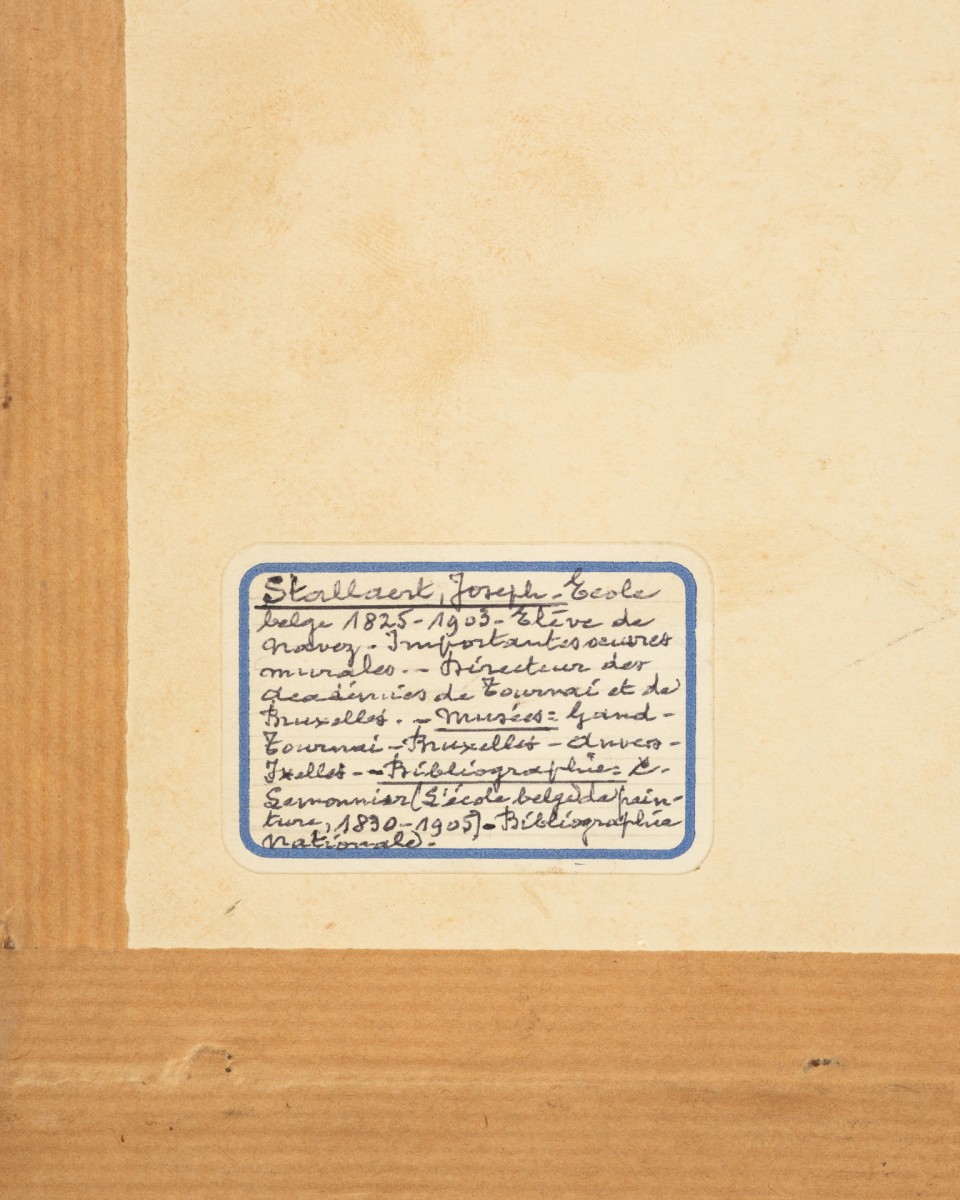 Stallaert, Joseph - Ecole
belge 1825-1903 - Elève de
Navez - Importantes oeuvres
murales. - Directeur des
Académies de Tournai et de
Bruxelles. - Musées= Gand -
Tournai - Bruxelles - Anvers -
Ixelles - - Bibliographie= C.
Lemonnier (L'école belge de pein-
ture, 1830-1905) - Bibliographie
Nationale -